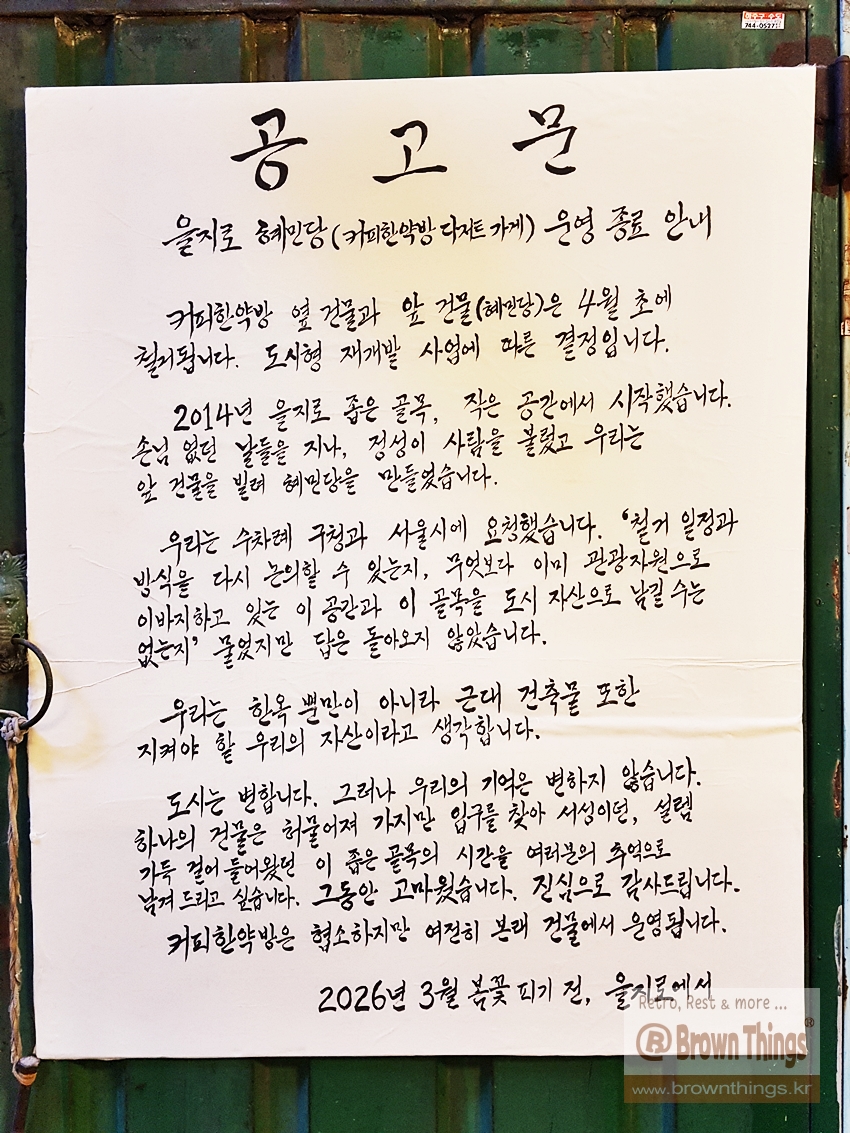 744-0527
공 고 문
을지로 혜민당(커피한약방 디저트 가게) 운영 종료 안내
커피한약방 옆 건물과 앞 건물(혜민당)은 4월 초에
철거됩니다. 도시형 재개발 사업에 따른 결정입니다.
2014년 을지로 좁은 골목, 작은 공간에서 시작했습니다.
손님 없던 날들을 지나, 정성이 사람을 불렀고 우리는
앞 건물을 빌려 혜민당을 만들었습니다.
우리는 수차례 구청과 서울시에 요청했습니다. '철거 일정과
방식을 다시 논의할 수 있는지, 무엇보다 이미 관광자원으로
이바지하고 있는 이 공간과 이 골목을 도시 자산으로 남길 수는
없는지' 물었지만 답은 돌아오지 않았습니다.
우리는 한옥 뿐만이 아니라 근대 건축물 또한
지켜야 할 우리의 자산이라고 생각합니다.
도시는 변합니다. 그러나 우리의 기억은 변하지 않습니다.
하나의 건물은 허물어져 가지만 입구를 찾아 서성이던, 설렘
가득 걸어 들어왔던 이 좁은 골목의 시간을 여러분의 추억으로
남겨 드리고 싶습니다. 그동안 고마웠습니다. 진심으로 감사드립니다.
커피한약방은 협소하지만 여전히 본래 건물에서 운영됩니다.
2026년 3월 봄꽃 피기 전, 을지로에서
Retro, Rest & more ...
® Brown Things®
www.brownthings.kr